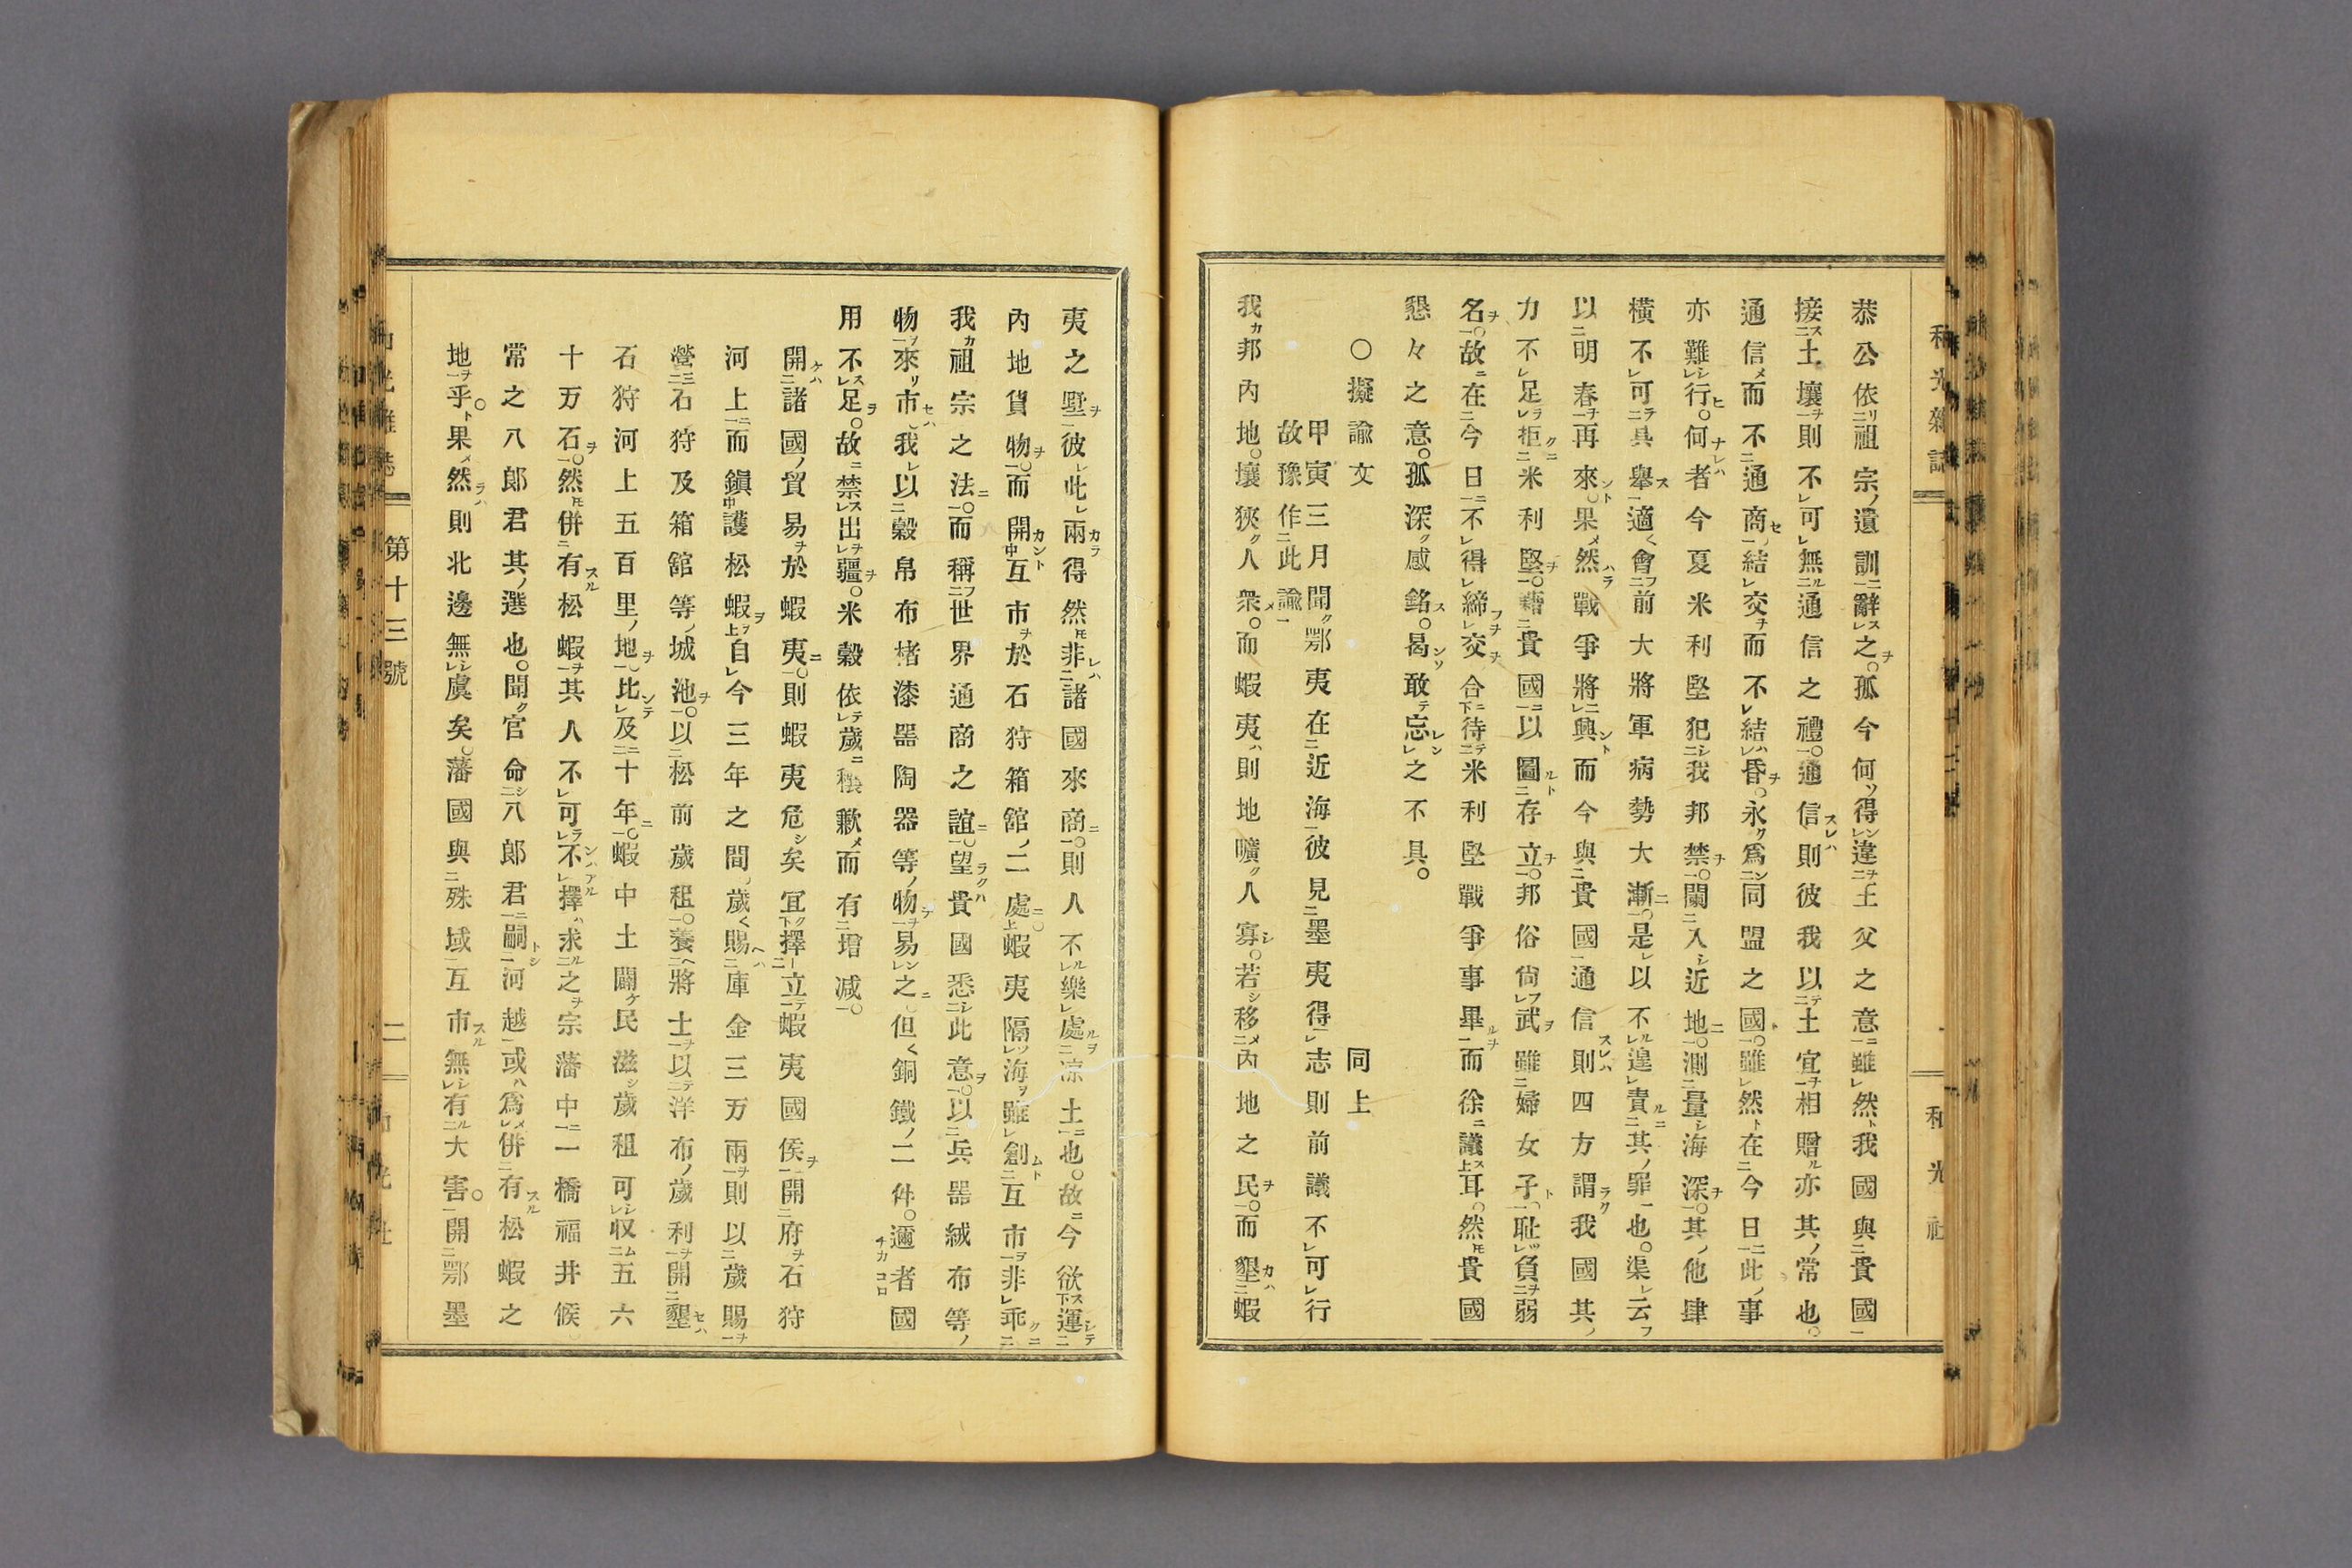 和光雜誌
和光社
恭公依祖宗遺訓辭之。孤今何得違土父之意雖然我國與貴國
接土壤則不可無通信之禮。通信則彼我以土宜相贈亦其常也。
通信而不通商結交而不結昏。永爲同盟之國。雖然在今日此事
亦難行。何者今夏米利堅犯我邦禁。闌入近地。測量海深。其他肆
橫不可具舉適會前大將軍病勢大漸。是以不遑責其罪也。渠云
以明春再來。果然戰爭將興而今與貴國通信則四方謂我國其
力不足拒米利堅。藉貴國以圖存立。邦俗尙武雖婦女子。耻負弱
名。故在今日不得締交合待米利堅戰爭事畢而徐議耳。然貴國
懇々之意。孤深感銘。曷敢忘之不具。
○擬諭文 同上
甲寅三月聞鄂夷在近海彼見墨夷得志則前議不可行
故豫作此諭
我邦內地。壤狹人衆。而蝦夷則地曠人寡。若移內地之民。而墾蝦
夷之墅彼此兩得然非諸國來商。則人不樂處凉土也。故今欲運
內地貨物。而開互市於石狩箱舘二處。蝦夷隔海雖創互市非乖
我祖宗之法。而稱世界通商之誼。望貴國悉此意。以兵器絨布等
物來市我以穀帛布楮漆器陶器等物易之但銅鐵二件。邇者國
用不足。故禁出疆。米穀依歲稔歉而有增减。
開諸國貿易於蝦夷。則蝦夷危矣冝擇立蝦夷國侯開府石狩
河上而鎭護松蝦自今三年之間歲賜庫金三万兩則以歲賜
營石狩及箱舘等城池。以松前歲租。養將士以洋布歲利開墾
石狩河上五百里地比及十年。蝦中土闢民滋歲租可収五六
十万石。然併有松蝦其人不可不擇求之宗藩中一橋福井候
常之八郎君其選也。聞官命八郎君嗣河越或爲併有松蝦之
地乎。果然則北邊無虞矣。藩國與殊域互市無有大害。開鄂墨
第十三號
二